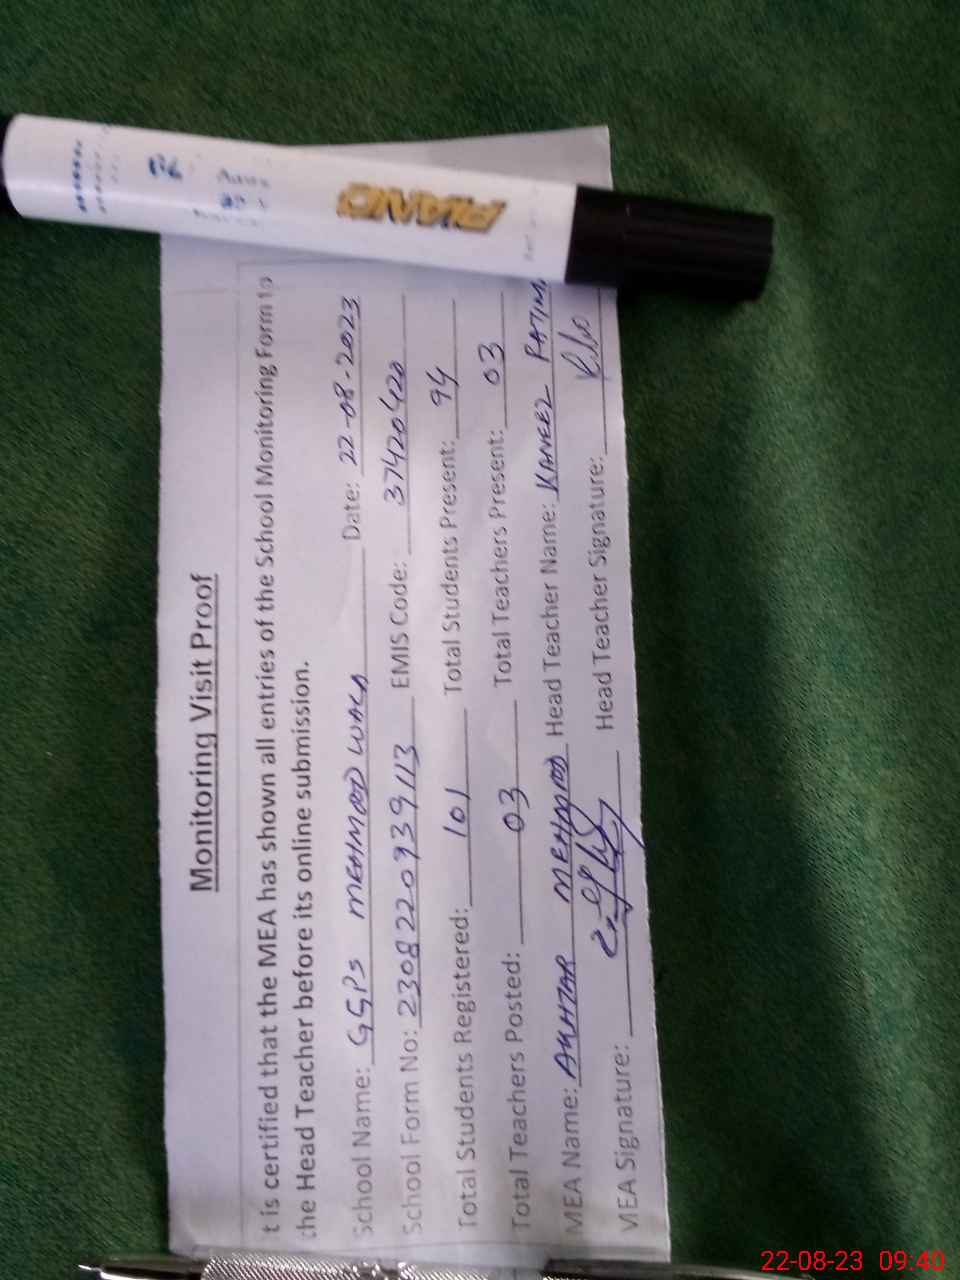 Monitoring Visit Proof
t is certified that the MEA has shown all entries of the School Monitoring Form to
the Head Teacher before its online submission.
School Name: GGPS MEHMOOD WALA Date: 22-08-2023
School Form No: 2308220939113 EMIS Code: 37420420
Total Students Registered: 101 Total Students Present: 94
Total Teachers Posted: 03 Total Teachers Present: 03
MEA Name: AKHTAR MEHMOOD Head Teacher Name: KANEEZ FATIM
MEA Signature: Head Teacher Signature:
PIANO
22-08-23 09:40